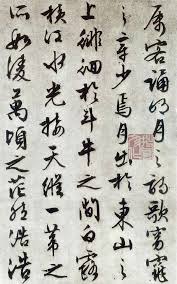 属客诵明月之诗歌窈窕
之章少焉月出於東山之
上徘徊於斗牛之間白露
横江水光接天縱一葦之
所如凌萬頃之茫然浩浩